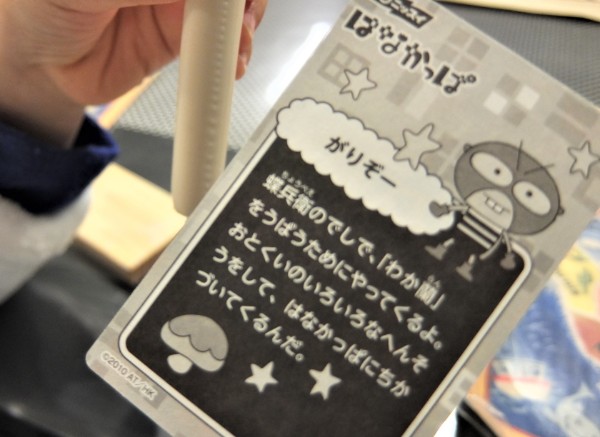 はなかっぱ
がりぞー
蝶兵衛のでしで、「わか蘭」
をうばうためにやってくるよ。
おとくいのいろいろなへんそ
うをして、はなかっぱにちか
づいてくるんだ。